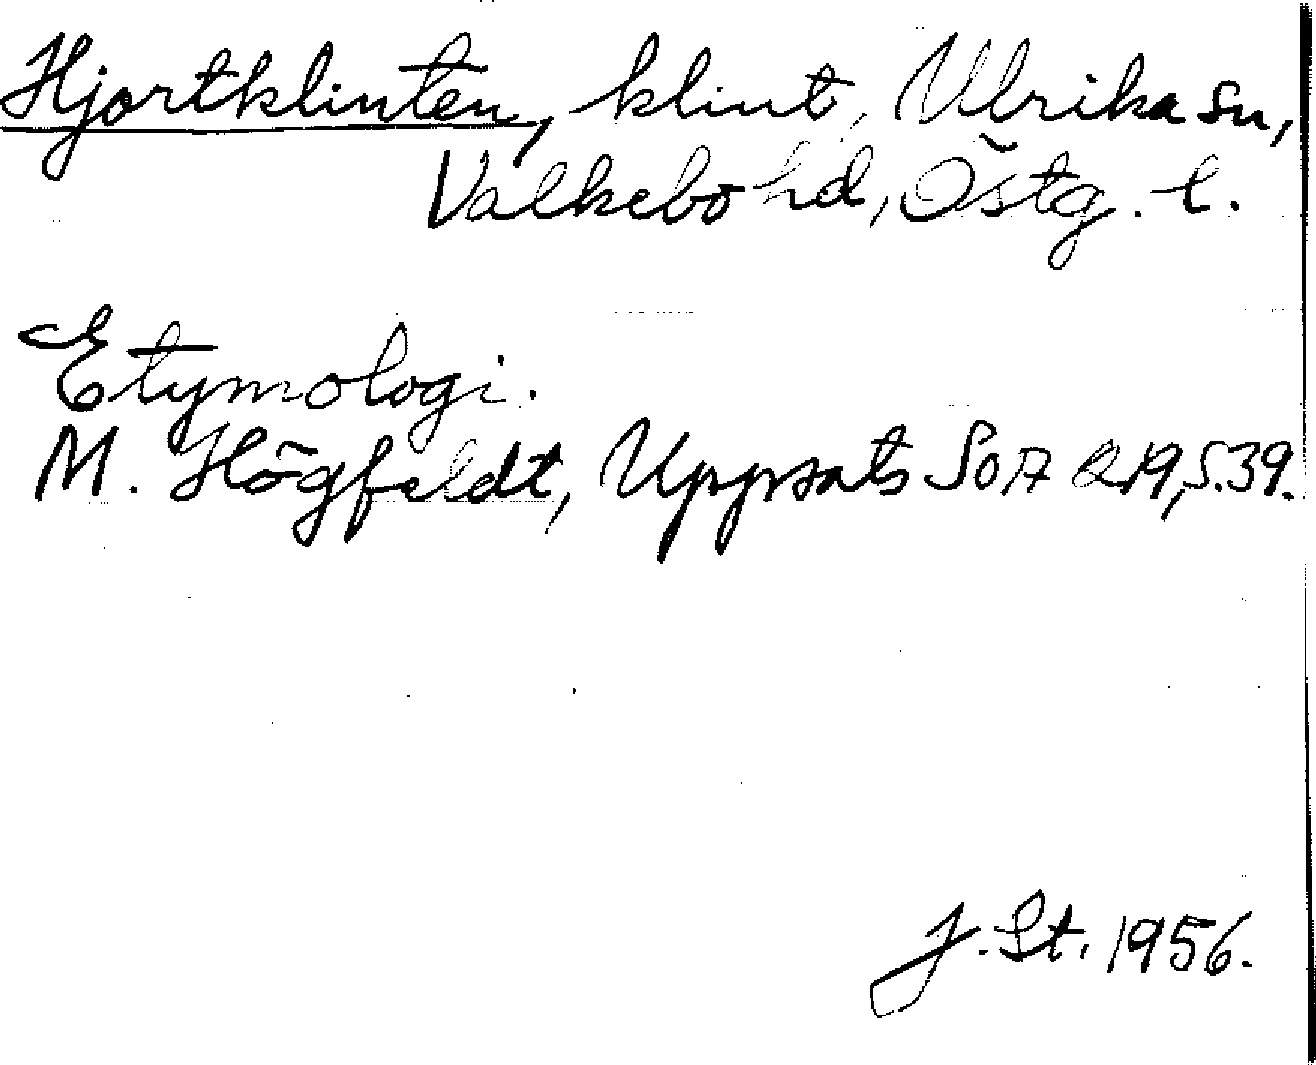 Hjortklinten, klint, Ulrika sn,
Valkebo hd, Östg. l.
Etymologi.
M. Högfeldt, Uppsats SOA 219, s. 39.
J. St. 1956.